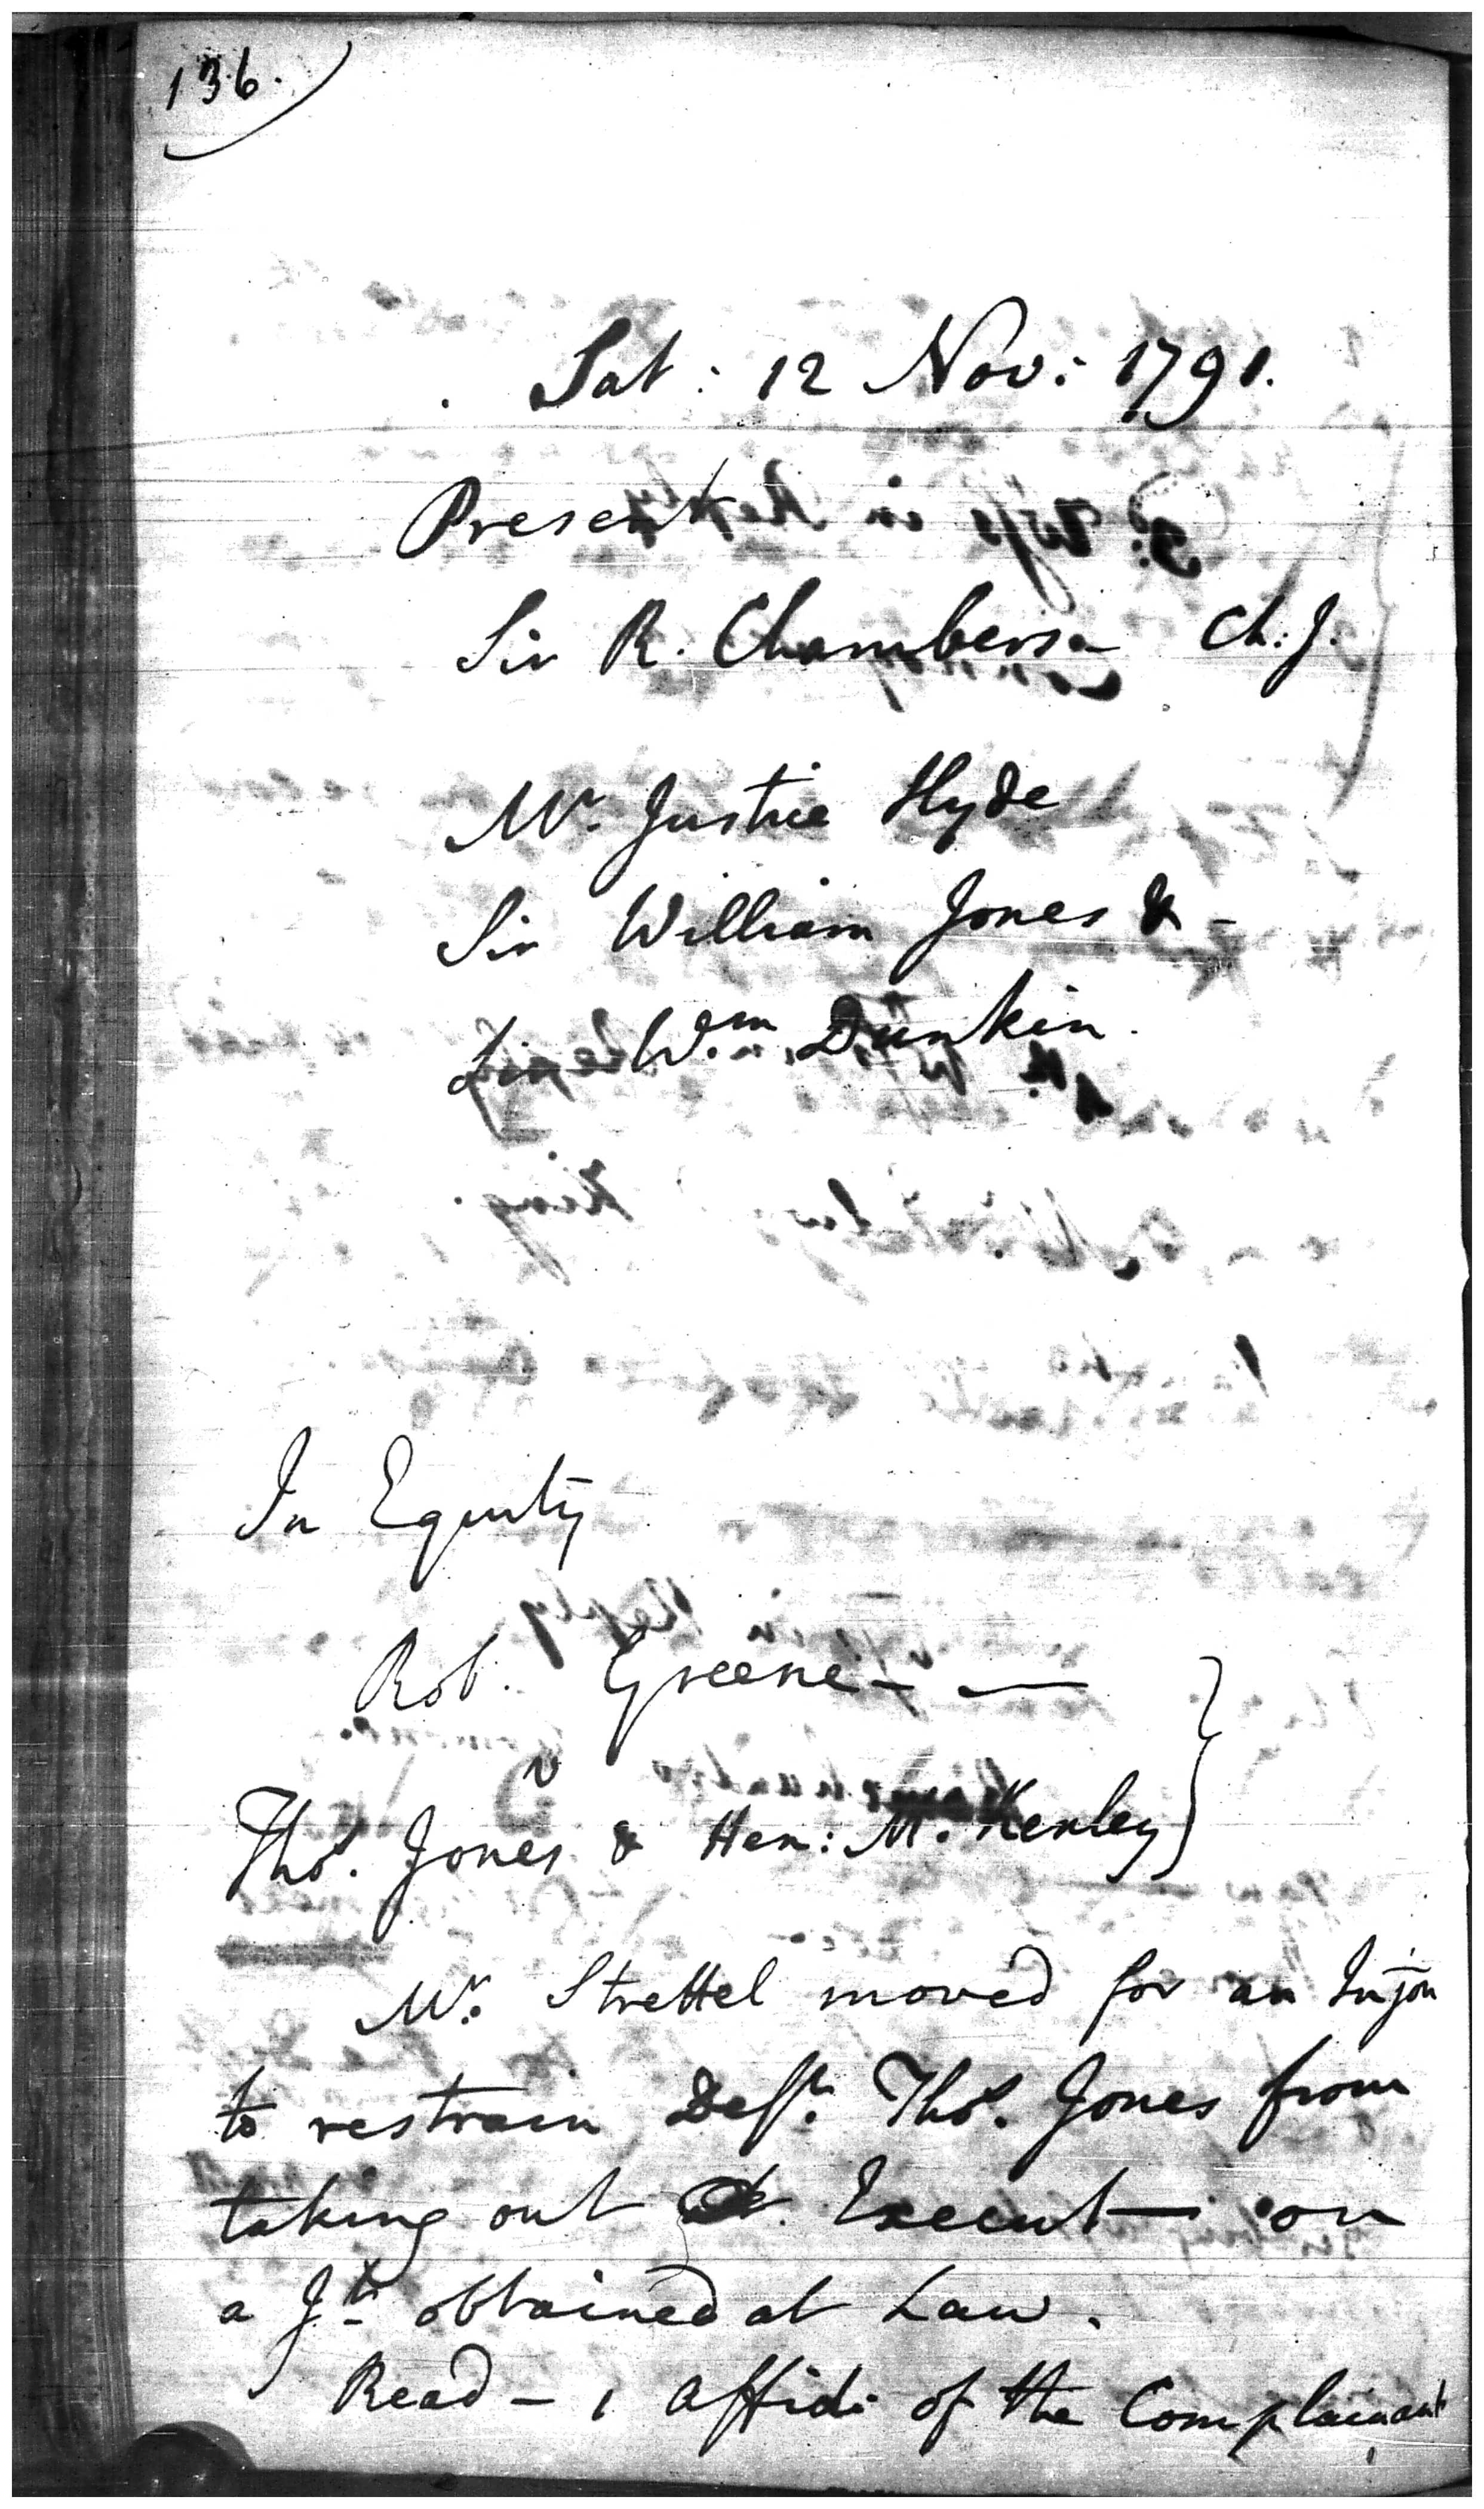 136.
Sat: 12 Nov: 1791.
Present
Sir R. Chambers Ch: J.
Mr. Justice Hyde
Sir William Jones &
Sir Wm. Dunkin.
In Equity
Rob. Greene
v
Thos. Jones & Hen: McKenley
Mr. Strettel moved for an Injon
to restrain Deft. Thos. Jones from
taking out Execut— on
a Jt. obtained at Law.
Read - 1 Affid: of the Complainant